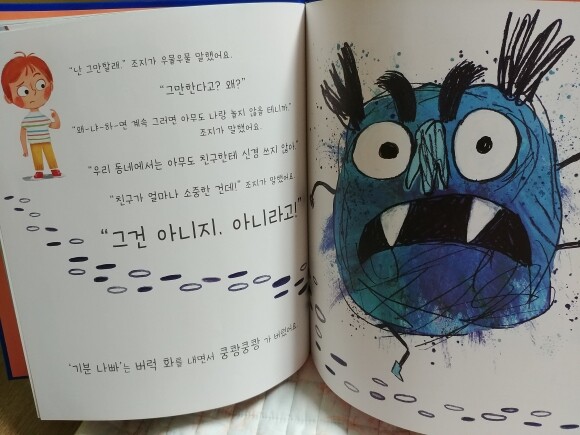 "난 그만할래." 조지가 우물우물 말했어요.
"그만한다고? 왜?"
"왜-냐-하-면 계속 그러면 아무도 나랑 놀지 않을 테니까."
조지가 말했어요.
"우리 동네에서는 아무도 친구한테 신경 쓰지 않아."
"친구가 얼마나 소중한 건데!" 조지가 말했어요.
"그건 아니지. 아니라고!"
'기분 나빠'는 버럭 화를 내면서 쿵쾅쿵쾅 가 버렸어요.